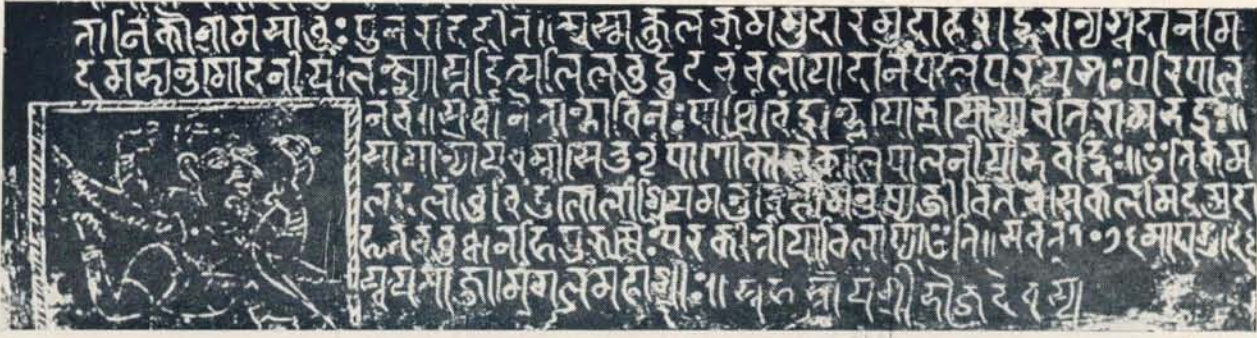 तानि को नाम साधुः पुनराददीत ॥ अस्मत्कुलक्रममुदारमुदाहरद्भिरन्यैश्च दानमि
दमभ्यनुमोदनीयं । लक्ष्म्यास्तडित्सलिलवुद्वुदचंचलाया दानं फलं परयशः परिपाल
नं च ॥ सर्वानेतान्भाविनः पार्थिवेंद्रान्भूयो भूयो याचते रामभद्रः ॥
सामान्योयं धर्म्मसेतुर्नृपाणां काले काले पालनीयो भवद्भिः ॥ इति कम
लदलांवुविंदुलोलां श्रियमनुचिन्त्य मनुष्यजीवितं च । सकलमिदमुदा
हृतं च वुध्वा न हि पुरुषैः परकीर्त्तयो विलोप्या इति ॥ सम्वत् १०७६ माघ शुदि ५
स्वयमाज्ञा । मंगलं महाश्रीः ॥ स्वहस्तोयं श्रीभोजदेवस्य